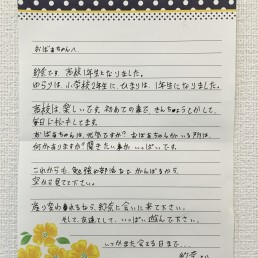 おばあちゃんへ
紗奈です。高校1年生となりました。
ゆらりは、小学校2年生に、ひまりは、1年生になりました。
高校は楽しいです。初めての事で、きんちょうとかして、
毎日ドキドキしてます。
おばあちゃんは、元気ですか？おばあちゃんがいる所は、
何がありますか？聞きたい事がいっぱいです。
これからも、勉強や部活など、がんばるから、
空から見てて下さい。
生まれるなら、紗奈に会いに来て下さい。
そして、友達として、いっぱい遊んで下さい。
いつかまた会える日まで…
紗奈より